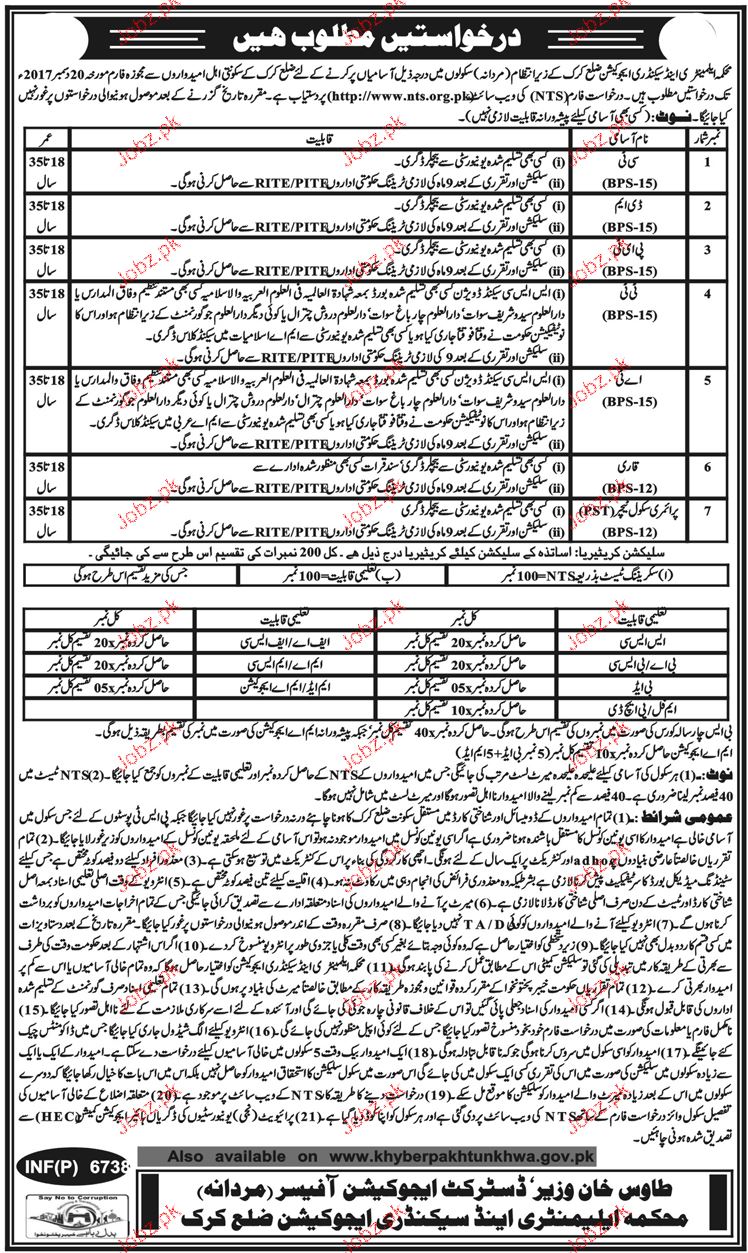 درخواستیں مطلوب ھیں
محکمہ ایلیمنٹری اینڈ سیکنڈری ایجوکیشن ضلع کرک کے زیر انتظام (مردانہ) سکولوں میں درجہ ذیل آسامیاں پر کرنے کے لئے ضلع کرک کے سکونتی اہل امیدواروں سے مجوزہ فارم مورخہ 20 دسمبر 2017ء
تک درخواستیں مطلوب ہیں۔ درخواست فارم (NTS) کی ویب سائٹ (http://www.nts.org.pk) پر دستیاب ہے۔ مقررہ تاریخ گزرنے کے بعد موصول ہونیوالی درخواستوں پر غور نہیں
کیا جائیگا۔ نوٹ: (کسی بھی آسامی کیلئے پیشہ ورانہ قابلیت لازمی نہیں)۔
نمبر شمار نام آسامی قابلیت عمر
1 سی ٹی (i) کسی بھی تسلیم شدہ یونیورسٹی سے بیچلر ڈگری۔ 18 تا 35
(BPS-15) (ii) سلیکشن اور تقرری کے بعد 9 ماہ کی لازمی ٹریننگ حکومتی اداروں RITE/PITE سے حاصل کرنی ہوگی۔ سال
2 ڈی ایم (i) کسی بھی تسلیم شدہ یونیورسٹی سے بیچلر ڈگری۔ 18 تا 35
(BPS-15) (ii) سلیکشن اور تقرری کے بعد 9 ماہ کی لازمی ٹریننگ حکومتی اداروں RITE/PITE سے حاصل کرنی ہوگی۔ سال
3 پی ای ٹی (i) کسی بھی تسلیم شدہ یونیورسٹی سے بیچلر ڈگری۔ 18 تا 35
(BPS-15) (ii) سلیکشن اور تقرری کے بعد 9 ماہ کی لازمی ٹریننگ حکومتی اداروں RITE/PITE سے حاصل کرنی ہوگی۔ سال
4 ٹی ٹی (i) ایس ایس سی سیکنڈ ڈویژن کسی بھی تسلیم شدہ بورڈ بمعہ شہادۃ العالمیہ فی العلوم العربیہ والاسلامیہ کسی بھی مستند تنظیم وفاق المدارس یا 18 تا 35
(BPS-15) دارالعلوم سیدو شریف سوات' دارالعلوم چارباغ سوات' دارالعلوم دروش چترال یا کوئی دیگر دارالعلوم جو گورنمنٹ کے زیر انتظام ہو اور اس کا سال
نوٹیفکیشن حکومت نے وقتاً فوقتاً جاری کیا ہو یا کسی بھی تسلیم شدہ یونیورسٹی سے ایم اے اسلامیات میں سیکنڈ کلاس ڈگری۔
(ii) سلیکشن اور تقرری کے بعد 9 کی لازمی ٹریننگ حکومتی اداروں RITE/PITE سے حاصل کرنی ہوگی۔
5 اے ٹی (i) ایس ایس سی سیکنڈ ڈویژن کسی بھی تسلیم شدہ بورڈ بمعہ شہادۃ العالمیہ فی العلوم العربیہ والاسلامیہ کسی بھی مستند تنظیم وفاق والمدارس یا 18 تا 35
(BPS-15) دارالعلوم سیدو شریف سوات' دارالعلوم چارباغ سوات' دارالعلوم چترال' دارالعلوم دروش چترال یا کوئی دیگر دارالعلوم جو گورنمنٹ کے سال
زیر انتظام ہو اور اس کا نوٹیفکیشن حکومت نے وقتاً فوقتاً جاری کیا ہو یا کسی بھی تسلیم شدہ یونیورسٹی سے ایم اے عربی میں سیکنڈ کلاس ڈگری۔
(ii) سلیکشن اور تقرری کے بعد 9 ماہ کی لازمی ٹریننگ حکومتی اداروں RITE/PITE سے حاصل کرنی ہوگی۔
6 قاری (i) کسی بھی تسلیم شدہ یونیورسٹی سے بیچلر ڈگری' سند قرات کسی بھی منظور شدہ ادارے سے 18 تا 35
(BPS-12) (ii) سلیکشن اور تقرری کے بعد 9 ماہ کی لازمی ٹریننگ حکومتی اداروں RITE/PITE سے حاصل کرنی ہوگی۔ سال
7 پرائمری سکول ٹیچر (PST) (i) کسی بھی تسلیم شدہ یونیورسٹی سے بیچلر ڈگری 18 تا 35
(BPS-12) (ii) سلیکشن اور تقرری کے بعد 9 ماہ کی لازمی ٹریننگ حکومتی اداروں RITE/PITE سے حاصل کرنی ہوگی۔ سال
سلیکشن کریٹیریا: اساتذہ کے سلیکشن کیلئے کریٹیریا درج ذیل ھے۔ کل 200 نمبرات کی تقسیم اس طرح سے کی جائیگی
(ا) سکریننگ ٹیسٹ بذریعہ NTS=100 نمبر (ب) تعلیمی قابلیت=100 نمبر جس کی مزید تقسیم اس طرح ہوگی
تعلیمی قابلیت کل نمبر تعلیمی قابلیت کل نمبر
ایس ایس سی حاصل کردہ نمبر x20 تقسیم کل نمبر ایف اے/ایف ایس سی حاصل کردہ نمبر x20 تقسیم کل نمبر
بی اے/بی ایس سی حاصل کردہ نمبر x20 تقسیم کل نمبر ایم اے/ایم ایس سی حاصل کردہ نمبر x20 تقسیم کل نمبر
بی ایڈ حاصل کردہ نمبر x05 تقسیم کل نمبر ایم ایڈ/ایم اے ایجوکیشن حاصل کردہ نمبر x05 تقسیم کل نمبر
ایم فل/پی ایچ ڈی حاصل کردہ نمبر x10 تقسیم کل نمبر
بی ایس چار سالہ کورس کی صورت میں نمبروں کی تقسیم اس طرح ہوگی۔ حاصل کردہ نمبر x40 تقسیم کل نمبر' جبکہ پیشہ ورانہ ایم اے ایجوکیشن کی صورت میں نمبر کی تقسیم بطریقہ ذیل ہوگی۔
ایم اے ایجوکیشن حاصل کردہ نمبر x10 تقسیم کل نمبر (5 نمبر بی ایڈ+5 ایم ایڈ)
نوٹ:۔ (1) ہر سکول کی آسامی کیلئے علیحدہ علیحدہ میرٹ لسٹ مرتب کی جائیگی جس میں امیدواروں کے NTS کے حاصل کردہ نمبر اور تعلیمی قابلیت کے نمبروں کو جمع کیا جائیگا۔ (2) NTS ٹیسٹ میں
40 فیصد نمبر لینا ضروری ہے۔ 40 فیصد سے کم نمبر لینے والا امیدوار نا اہل تصور ہوگا اور میرٹ لسٹ میں شامل نہیں ہوگا۔
عمومی شرائط:۔ (1) تمام امیدواروں کے ڈومیسائل اور شناختی کارڈ میں مستقل سکونت ضلع کرک کا ہونا چاہئے ورنہ درخواست پر غور نہیں کیا جائیگا جبکہ پی ایس ٹی پوسٹوں کے لئے جس سکول میں
آسامی خالی ہے امیدوار کا اسی یونین کونسل کا مستقل باشندہ ہونا ضروری ہے اگر اسی یونین کونسل میں امیدوار موجود نہ ہو تو اس آسامی کے لئے ملحقہ یونین کونسل کے امیدواروں کو زیر غور لایا جائیگا۔ (2) تمام
تقرریاں خالصتاً عارضی بنیادوں adhoc اور کنٹریکٹ پر ایک سال کے لئے ہونگی۔ اچھی کارکردگی کی بناء پر اس کے کنٹریکٹ میں توسیع ہو سکتی ہے۔ (3) معذور افراد کیلئے دو فیصد کوٹہ مختص ہے جس کیلئے
سٹینڈنگ میڈیکل بورڈ کا سرٹیفکیٹ پیش کرنا لازمی ہے بشرطیکہ وہ معذوری فرائض کی انجام دہی میں رکاوٹ نہ ہو۔ (4) اقلیت کیلئے تین فیصد کوٹہ مختص ہے۔ (5) انٹرویو کے وقت اصلی تعلیمی اسناد بمعہ اصل
شناختی کارڈ اور ٹیسٹ کے دن صرف اصلی شناختی کارڈ لانا لازمی ہے۔ (6) میرٹ پر آنے والے امیدواروں کی اسناد متعلقہ ادارے سے تصدیق کرائی جائیگی جس کے تمام اخراجات امیدواروں کو برداشت
کرنا ہوں گے۔ (7) انٹرویو کیلئے آنے والے امیدواروں کو کوئی TA/DA نہیں دیا جائیگا۔ (8) صرف مقررہ وقت کے اندر موصول ہونیوالی درخواستوں پر غور کیا جائیگا۔ مقررہ تاریخ کے بعد دستاویزات
میں کسی قسم کا ردوبدل بھی نہیں کیا جائیگا۔ (9) زیر دستخطی کو اختیار حاصل ہے کہ وہ کوئی وجہ بتائے بغیر کسی بھی وقت کلی یا جزوی طور پر انٹرویو منسوخ کر دے۔ (10) اگر اس اشتہار کے بعد حکومت وقت کی طرف
سے بھرتی کے طریقہ کار میں تبدیلی کی گئی تو سلیکشن کمیٹی اس کے مطابق عمل کرنے کی پابند ہوگی۔ (11) محکمہ ایلیمنٹری اینڈ سیکنڈری ایجوکیشن کو اختیار حاصل ہوگا کہ وہ تمام خالی آسامیوں یا اس سے کم پر
امیدوار بھرتی کرے۔ (12) تمام تقرریاں حکومت خیبر پختونخوا کے مقرر کردہ قوانین و مجوزہ طریقہ کار کے مطابق خالصتاً میرٹ کی بنیاد پر ہوں گی۔ (13) تمام تعلیمی اسناد صرف گورنمنٹ کے تسلیم شدہ
اداروں کی قابل قبول ہونگی۔ (14) اگر کسی امیدوار کی اسناد جعلی پائی گئیں تو اس کے خلاف قانونی چارہ جوئی کی جائے گی اور آئندہ کے لئے اسے سرکاری ملازمت کے لئے نااہل تصور کیا جائیگا۔ (15)
نامکمل فارم یا معلومات کی صورت میں درخواست فارم خود بخود منسوخ تصور کیا جائیگا جس کے لئے کوئی اپیل منظور نہیں کی جائے گی۔ (16) انٹرویو کیلئے الگ شیڈول جاری کیا جائیگا جس میں ڈاکومنٹس چیک
کئے جائینگے۔ (17) امیدوار کو اسی سکول میں سروس کرنا ہوگی جو کہ ناقابل تبادلہ ہوگی۔ (18) ایک امیدوار بیک وقت 5 سکولوں میں خالی آسامیوں کیلئے درخواست دے سکتا ہے۔ امیدوار کے ایک یا ایک
سے زیادہ سکولوں میں سلیکشن کی صورت میں اس کی تقرری کسی ایک سکول میں کی جائے گی اس صورت میں سکول سلیکشن کا استحقاق امیدوار کو حاصل نہیں بلکہ اس میں اس بات کا خیال رکھا جائیگا کہ دوسرے
سکولوں میں اس کے بعد زیادہ میرٹ والے امیدوار کو سلیکشن کا موقع مل سکے۔ (19) درخواست دینے کا طریقہ کار NTS کے ویب سائٹ پر موجود ہے۔ (20) متعلقہ اضلاع کے خالی آسامیوں کی
تفصیل سکول وائز درخواست فارم کے ساتھ NTS کی ویب سائٹ پر دی گئی ہے اور ہر سکول کو اپنا کوڈ دیا گیا ہے۔ (21) پرائیویٹ (نجی) یونیورسٹیوں کی ڈگریاں ہائیر ایجوکیشن کمیشن (HEC) سے
تصدیق شدہ ہونی چاہئیں۔
INF(P) 6738
Also available on www.khyberpakhtunkhwa.gov.pk
Say No to Corruption
طاوس خان وزیر' ڈسٹرکٹ ایجوکیشن آفیسر (مردانہ)
محکمہ ایلیمنٹری اینڈ سیکنڈری ایجوکیشن ضلع کرک
Jobz.pk